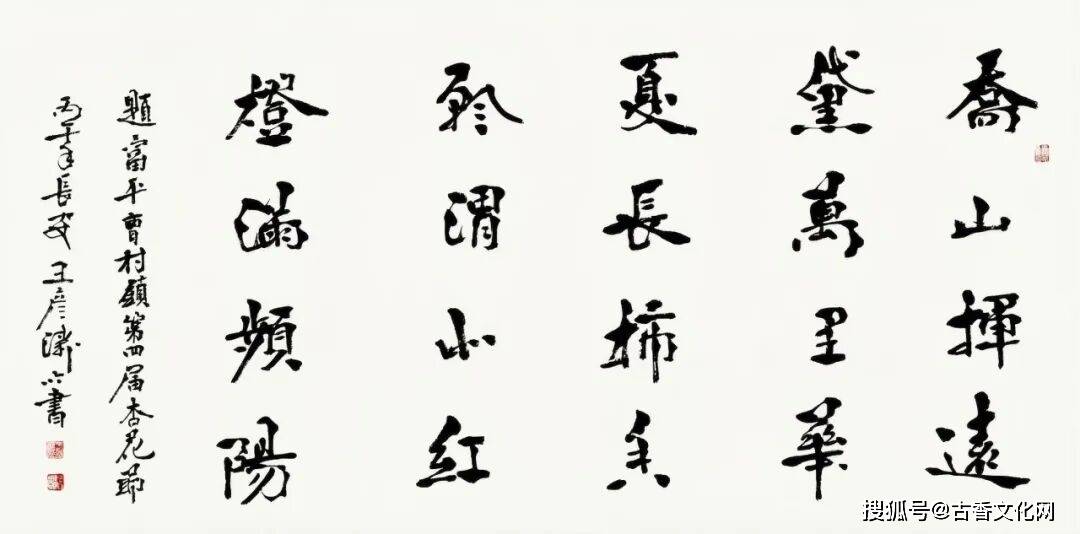 喬山揮遠
黛萬里華
夏長柿香
聆渭北紅
燈滿頻陽
題富平曹村鎮第四届杏花節
丙午年長安王彦
書
搜狐号@古香文化网